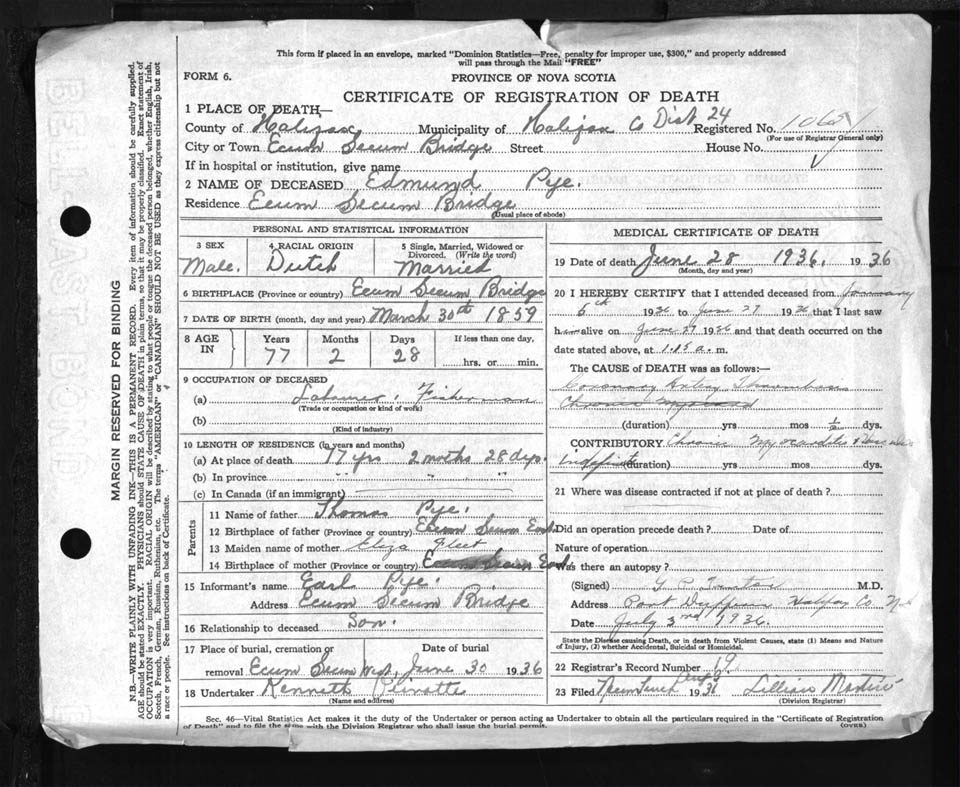 This form if placed in an envelope, marked "Dominion Statistics—Free, penalty for improper use, $300," and properly addressed
will pass through the Mail "FREE"
FORM 6. PROVINCE OF NOVA SCOTIA
CERTIFICATE OF REGISTRATION OF DEATH
1 PLACE OF DEATH,—
County of Halifax Municipality of Halifax Co Dist 24 Registered No.
(For use of Registrar General only)
City or Town Ecum Secum Bridge Street House No.
If in hospital or institution, give name
2 NAME OF DECEASED Edmund Pye.
Residence Ecum Secum Bridge
(Usual place of abode)
PERSONAL AND STATISTICAL INFORMATION
3 SEX
Male.
4 RACIAL ORIGIN
Dutch
5 Single, Married, Widowed or
Divorced. (Write the word)
Married
6 BIRTHPLACE (Province or country) Ecum Secum Bridge
7 DATE OF BIRTH (month, day and year) March 30th 1859
8 AGE IN
Years Months Days If less than one day,
77 2 28 hrs. or min.
9 OCCUPATION OF DECEASED
(a) Labourer, Fisherman
(Trade or occupation or kind of work)
(b)
(Kind of industry)
10 LENGTH OF RESIDENCE (in years and months)
(a) At place of death 77 yrs 2 months 28 dys.
(b) In province " " "
(c) In Canada (if an immigrant)
Parents
11 Name of father Thomas Pye.
12 Birthplace of father (Province or country) Ecum Secum East
13 Maiden name of mother Eliza Fleet
14 Birthplace of mother (Province or country) Ecum Secum East
15 Informant's name Earl Pye.
Address Ecum Secum Bridge
16 Relationship to deceased Son.
17 Place of burial, cremation or Date of burial
removal Ecum Secum West June 30 1936
18 Undertaker Kenneth
(Name and address)
MEDICAL CERTIFICATE OF DEATH
19 Date of death June 28 1936, 1936
(Month, day and year)
20 I HEREBY CERTIFY that I attended deceased from January
6th 1936 to June 27 1936 that I last saw
him alive on June 27 1936 and that death occurred on the
date stated above, at 1.15 a.m.
The CAUSE of DEATH was as follows:—
Coronary Artery Thrombosis
Chronic
(duration) yrs mos ½ dys.
CONTRIBUTORY Chronic Myocarditis
Indefinite (duration) yrs. mos. dys.
21 Where was disease contracted if not at place of death?
Did an operation precede death? Date of
Nature of operation
Was there an autopsy?
(Signed) M.D.
Address Port Dufferin Halifax Co N.S.
Date July 3rd 1936.
State the Disease causing Death, or in death from Violent Causes, state (1) Means and Nature
of Injury, (2) whether Accidental, Suicidal or Homicidal.
22 Registrar's Record Number 19
23 Filed 1936 Lillian
(Division Registrar)
Sec. 46—Vital Statistics Act makes it the duty of the Undertaker or person acting as Undertaker to obtain all the particulars required in the "Certificate of Registration
of Death" and to file the same with the Division Registrar who shall issue the burial permit. (OVER)
MARGIN RESERVED FOR BINDING
N.B.—WRITE PLAINLY WITH UNFADING INK—THIS IS A PERMANENT RECORD. Every item of information should be carefully supplied.
AGE should be stated EXACTLY. PHYSICIANS should STATE CAUSE OF DEATH in plain terms, so that it may be properly classified. Exact statement of
OCCUPATION is very important. RACIAL ORIGIN will be described by stating to what people or tongue the deceased person belonged, whether English, Irish,
Scotch, French, German, Russian, Ruthenian, etc. The terms "AMERICAN" or "CANADIAN" SHOULD NOT BE USED as they express citizenship but not
a race or people. See instructions on back of Certificate.